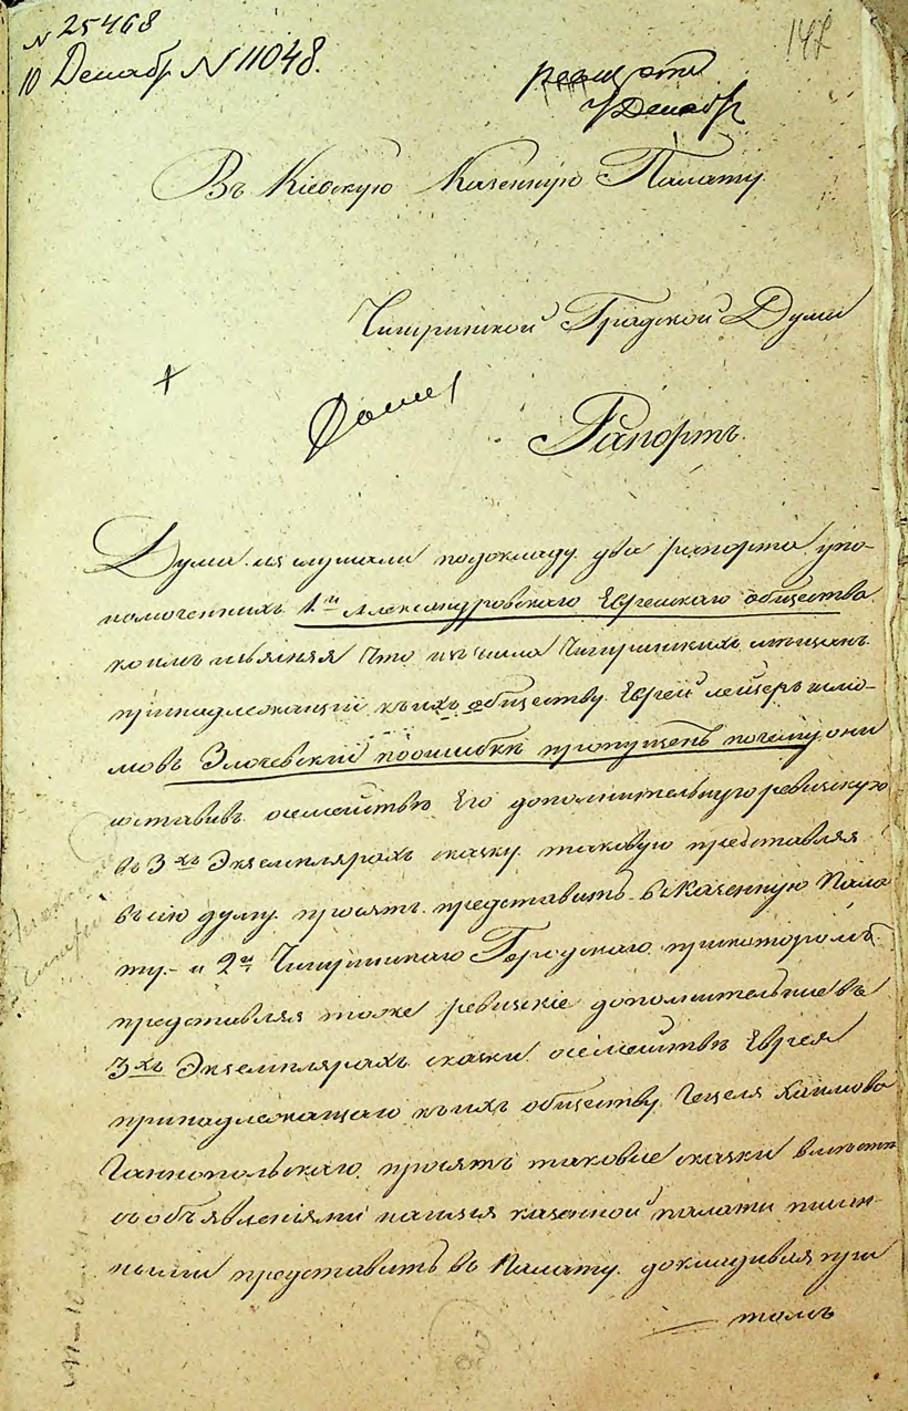 № 25468
10 Декабр № 11048.
142
Декабр
Въ Кіевскую Казенную Палату
Чигиринской Градской Думы
Рапортъ.
Дума выслушали подокладу два рапорта упо-
номоченнихъ 1.й Александровскаго Еврейскаго общества
коимъ изъясняя что изъ числа Чигиринскихъ мещанъ
принадлежащий къ ихъ обществу Еврей Лейзеръ Шлио-
мовъ Злочевский поошибки пропущенъ почему они
составивъ осемействѣ Его дополнительную ревизскую
въ 3хъ Экземплярахъ скаску таковую представляя
въ сію думу просятъ представить въ Казенную Пала
ту. и 2й Чигиринскаго Городскаго прикоторомъ
представляя тоже ревизкіе дополнительние въ
3хъ Экземплярахъ скаски осемействѣ Еврея
принадлежащаго къ ихъ обществу Гецеля Хаимова
Ганнопольскаго просятъ таковие скаски вместе
собъявленіями наимя казенной палаты
представить въ Палату докладивая при
томъ